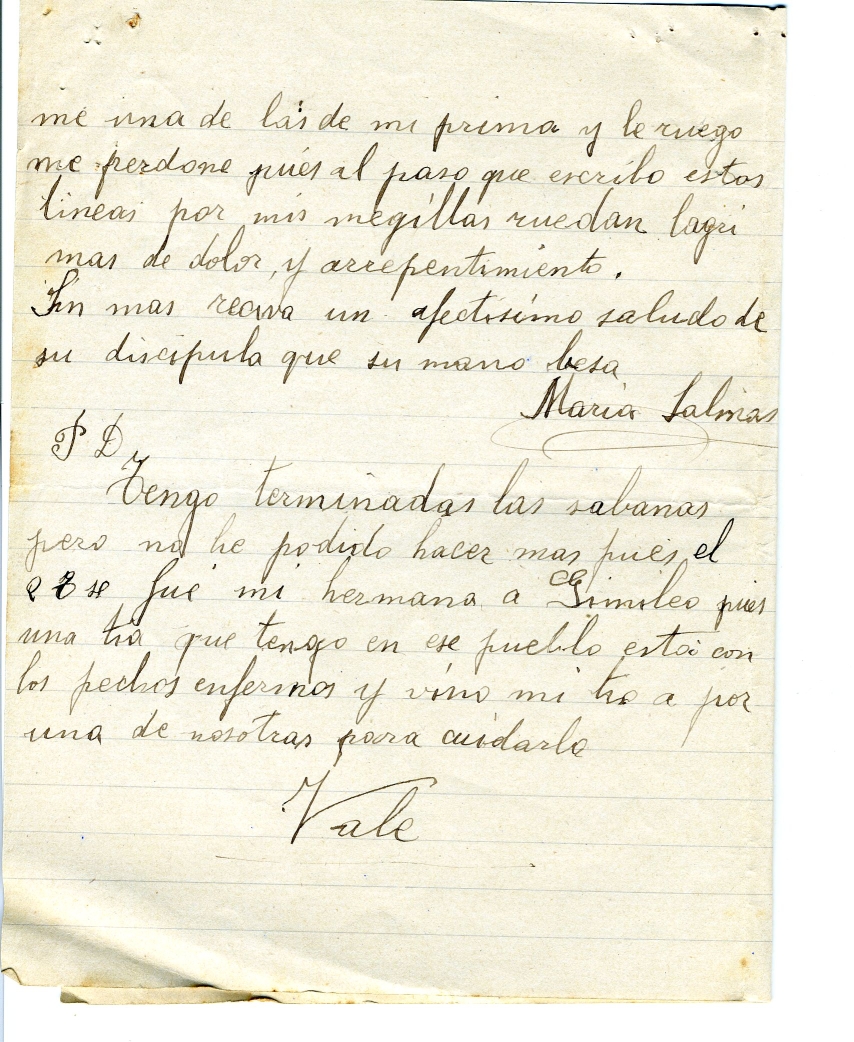 me una de las de mi prima y le ruego
me perdone pués al paso que escribo estos
lineas por mis megillas ruedan lagri
mas de dolor, y arrepentimiento.
Sin mas reciva un afectisimo saludo de
su discipula que su mano besa
Maria Salinas
P D
Tengo terminadas las sabanas
pero no he podido hacer mas pues el
se fué mi hermana a Gimileo pues
una tia que tengo en ese pueblo está con
los pechos enfermos y vino mi tio a por
una de nosotras para cuidarla
Vale